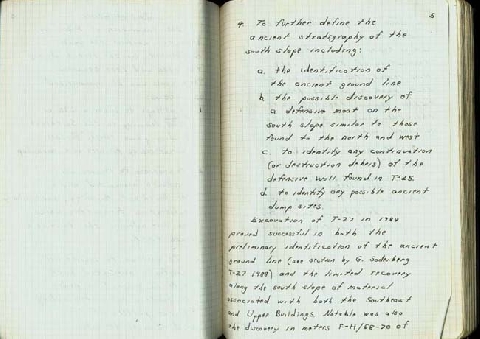 5
4. To further define the
ancient stratigraphy of the
south slope including:
a. the identification of
the ancient ground line
b. the possible discovery of
a defensive moat on the
south slope similar to those
found to the north and west
c. to identify any continuation
(or destruction debris) of the
defensive wall found in T-25.
d. to identify any possible ancient
dump sites.
Excavation of T-27 in 1980
proved successful in both the
preliminary identification of the ancient
ground line (see section by G.
T-27 1980) and the limited recovery
along the south slope of material
associated with both the Southeast
and Upper Buildings. Notable was also
the discovery in meters F-H/68-70 of